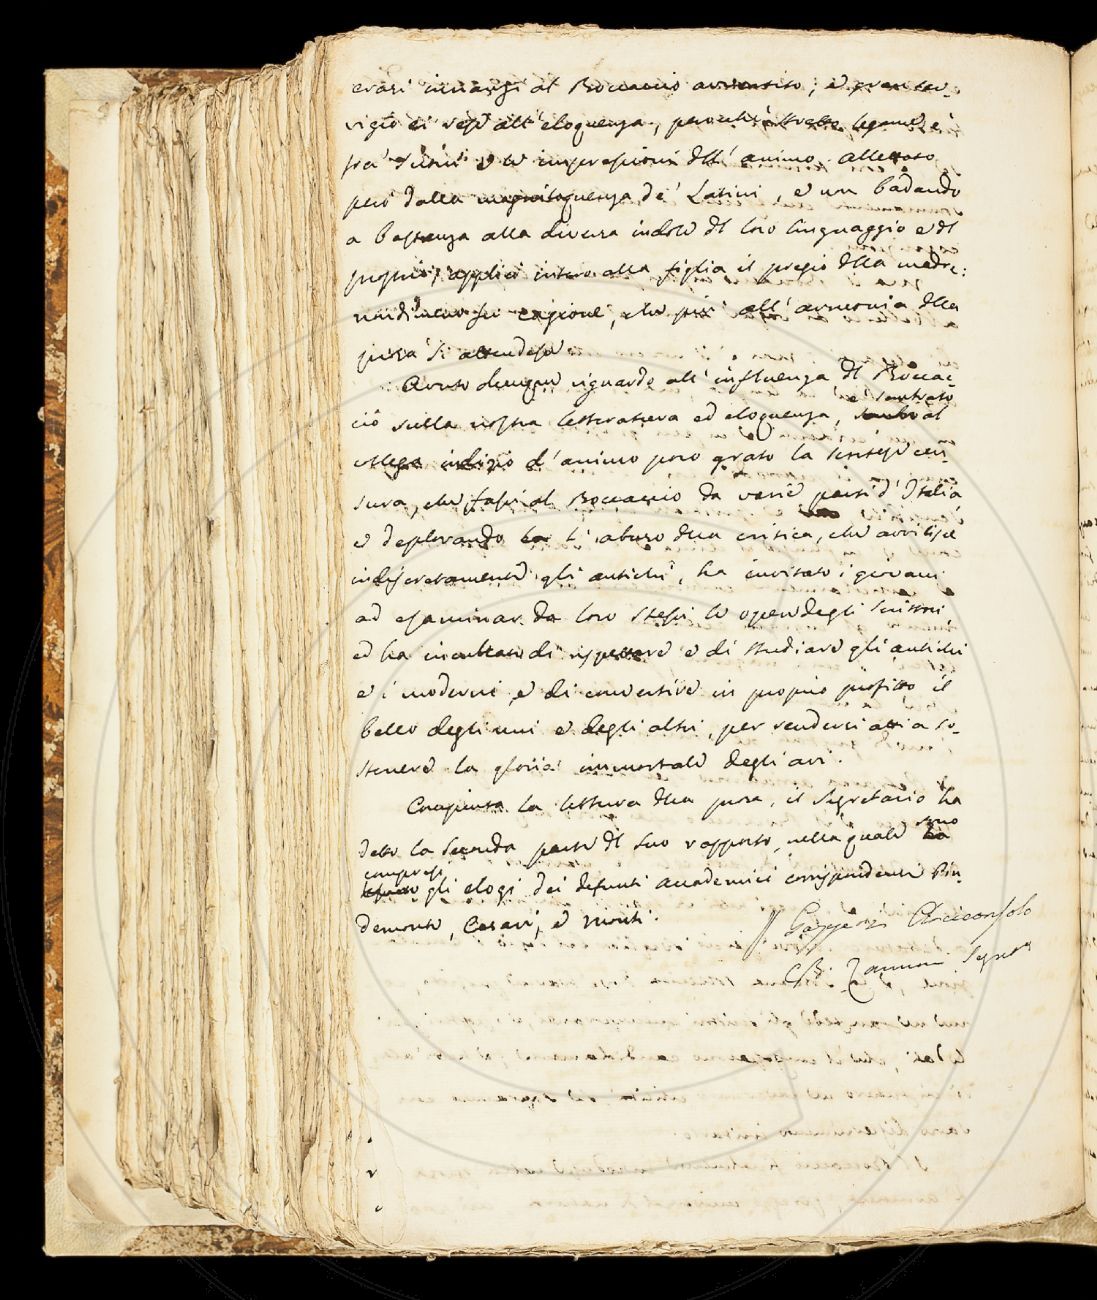 erasi innanzi al Boccaccio avvertito; e gran ser-
vigio ei rese all'eloquenza, perocchè stretto legame è
fra i suoni e le impressioni dell'animo. Allettato
però dalla magniloquenza de' Latini, e non badando
a bastanza alla diversa indole del loro linguaggio e del
proprio, applicò intero alla figlia il pregio della madre:
fu cagione, che più all'armonia della
prosa si attendesse.
Avuto dunque riguardo all'influenza del Boccac-
cio sulla nostra letteratura ed eloquenza, è sembrato
al
collega indizio d'animo poco grato la scortese cen-
sura, che fassi al Boccaccio da varie parti d'Italia
e deplorando l'abuso della critica, che avvilisce
indiscretamente gli antichi, ha invitato i giovani
ad esaminar da loro stessi le opere degli scrittori
ed ha inculcato di rispettare e di studiare gli antichi
e i moderni, e di convertire in proprio profitto il
bello degli uni e degli altri, per rendersi atti a so-
stenere la gloria immortale degli avi.
Compiuta la lettura della prosa, il Segretario ha
detto la seconda parte del suo rapporto, nella quale sono
compresi
gli elogi dei defunti accademici corrispondenti Pin-
demonte, Cesari, e Monti.
G. Gazzeri Arciconsolo
G. B. Zannoni Segret.